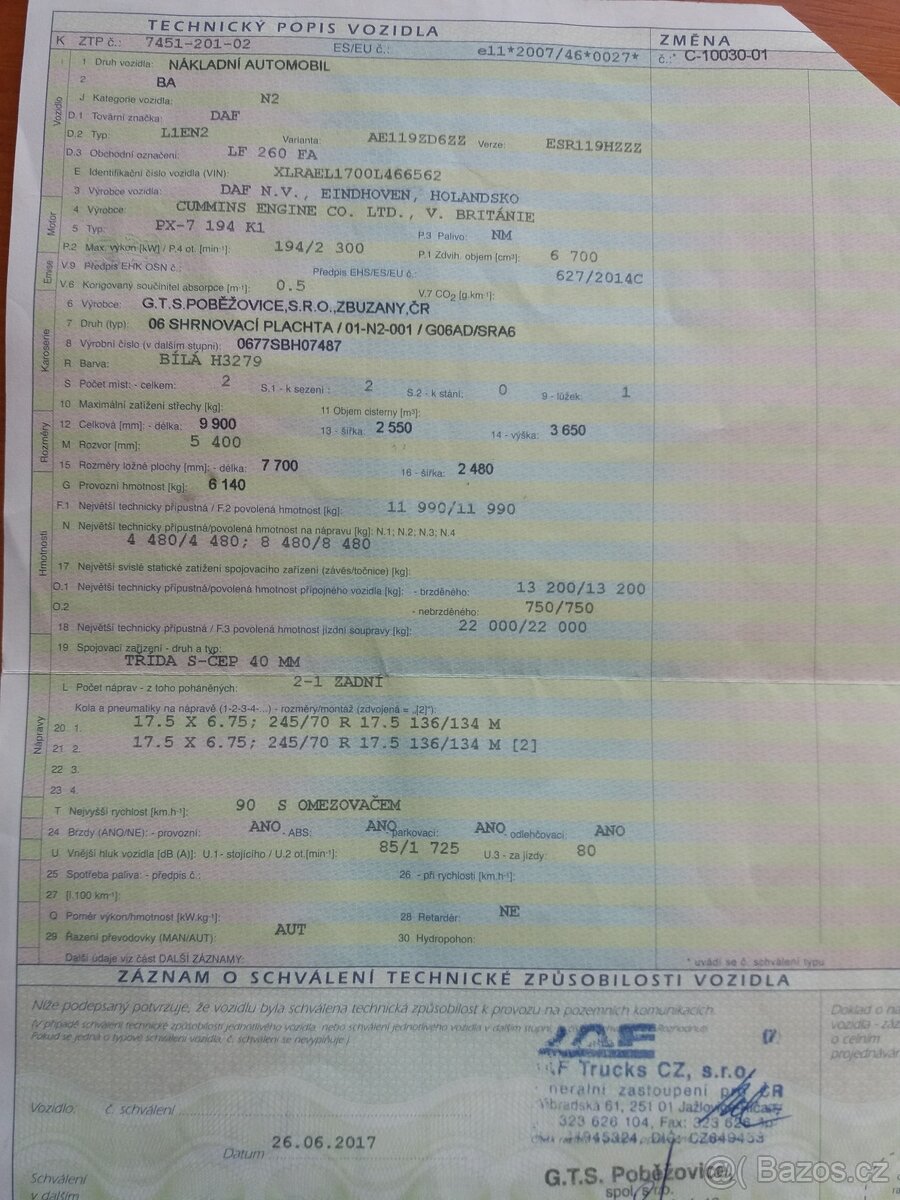 TECHNICKÝ POPIS VOZIDLA
K ZTP č.: 7451-201-02 ES/EU č.: e11*2007/46*0027*
ZMĚNA
č.:* C-10030-01
Vozidlo
1 Druh vozidla: NÁKLADNÍ AUTOMOBIL
2 BA
J Kategorie vozidla: N2
D.1 Tovární značka: DAF
D.2 Typ: L1EN2 Varianta: AE119ZD6ZZ Verze: ESR119HZZZ
D.3 Obchodní označení: LF 260 FA
E Identifikační číslo vozidla (VIN): XLRAEL1700L466562
3 Výrobce vozidla: DAF N.V., EINDHOVEN, HOLANDSKO
Motor
4 Výrobce: CUMMINS ENGINE CO. LTD., V. BRITÁNIE
5 Typ: PX-7 194 K1 P.3 Palivo: NM
P.2 Max. výkon [kW] / P.4 ot. [min⁻¹]: 194/2 300 P.1 Zdvih. objem [cm³]: 6 700
Emise
V.9 Předpis EHK OSN č.: Předpis EHS/ES/EU č.: 627/2014C
V.6 Korigovaný součinitel absorpce [m⁻¹]: 0.5 V.7 CO₂ [g.km⁻¹]:
Karoserie
6 Výrobce: G.T.S.POBĚŽOVICE,S.R.O.,ZBUZANY,ČR
7 Druh (typ): 06 SHRNOVACÍ PLACHTA / 01-N2-001 / G06AD/SRA6
8 Výrobní číslo (v dalším stupni): 0677SBH07487
R Barva: BÍLÁ H3279
S Počet míst: - celkem: 2 S.1 - k sezení: 2 S.2 - k stání: 0 9 - lůžek: 1
10 Maximální zatížení střechy [kg]: 11 Objem cisterny [m³]:
Rozměry
12 Celková [mm]: - délka: 9 900 13 - šířka: 2 550 14 - výška: 3 650
M Rozvor [mm]: 5 400
15 Rozměry ložné plochy [mm]: - délka: 7 700 16 - šířka: 2 480
G Provozní hmotnost [kg]: 6 140
Hmotnosti
F.1 Největší technicky přípustná / F.2 povolená hmotnost [kg]: 11 990/11 990
N Největší technicky přípustná/povolená hmotnost na nápravu [kg]: N.1; N.2; N.3; N.4
4 480/4 480; 8 480/8 480
17 Největší svislé statické zatížení spojovacího zařízení (závěs/točnice) [kg]:
O.1 Největší technicky přípustná/povolená hmotnost přípojného vozidla [kg]: - brzděného: 13 200/13 200
O.2 - nebrzděného: 750/750
18 Největší technicky přípustná / F.3 povolená hmotnost jízdní soupravy [kg]: 22 000/22 000
19 Spojovací zařízení - druh a typ:
TŘÍDA S-ČEP 40 MM
Nápravy
L Počet náprav - z toho poháněných: 2-1 ZADNÍ
Kola a pneumatiky na nápravě (1-2-3-4-...) - rozměry/montáž (zdvojená = „[2]"):
20 1. 17.5 X 6.75; 245/70 R 17.5 136/134 M
21 2. 17.5 X 6.75; 245/70 R 17.5 136/134 M [2]
22 3.
23 4.
T Nejvyšší rychlost [km.h⁻¹]: 90 S OMEZOVAČEM
24 Brzdy (ANO/NE): - provozní: ANO - ABS: ANO parkovací: ANO odlehčovací: ANO
U Vnější hluk vozidla [dB (A)]: U.1 - stojícího / U.2 ot.[min⁻¹]: 85/1 725 U.3 - za jízdy: 80
25 Spotřeba paliva: - předpis č.: 26 - při rychlosti [km.h⁻¹]:
27 [l.100 km⁻¹]:
Q Poměr výkon/hmotnost [kW.kg⁻¹]: 28 Retardér: NE
29 Řazení převodovky (MAN/AUT): AUT 30 Hydropohon:
Další údaje viz část DALŠÍ ZÁZNAMY:
* uvádí se č. schválení typu
ZÁZNAM O SCHVÁLENÍ TECHNICKÉ ZPŮSOBILOSTI VOZIDLA
Níže podepsaný potvrzuje, že vozidlu byla schválena technická způsobilost k provozu na pozemních komunikacích.
Pokud se jedná o typové schválení vozidla, č. schválení se nevyplňuje.)
Doklad o
vozidla -
o celním
AF Trucks CZ, s.r.o.
nerální zastoupení pro ČR
Vozidlo: č. schválení
323 626 104, Fax: 323 626
Datum 26.06.2017
G.T.S. Poběžovice
spol. s r.o.
Schválení
v dalším
Bazos.cz